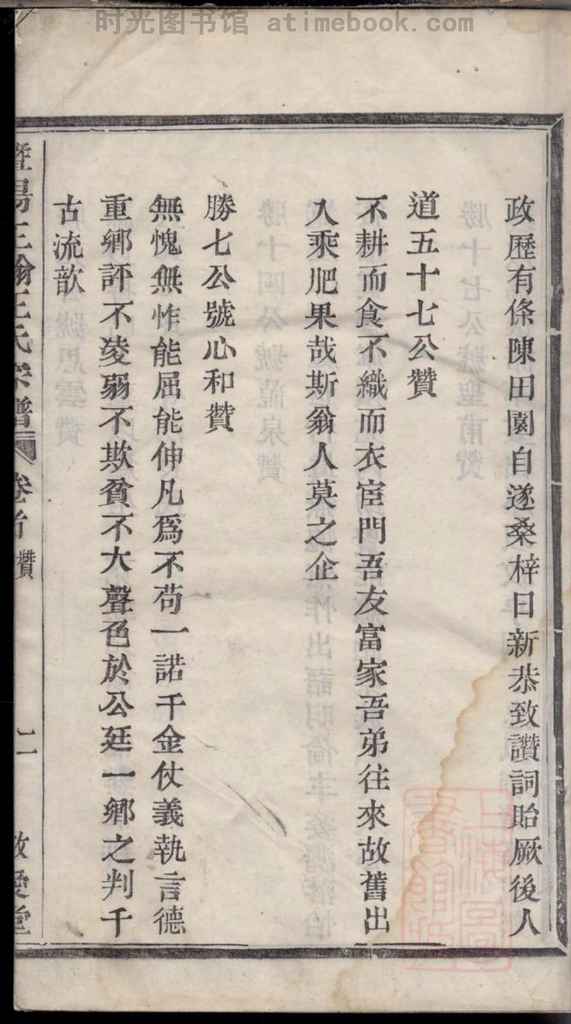 时光图书馆 atimebook.com
政歷有條陳田園自遂桑梓日新恭致讚詞貽厥後人
道五十七公贊
不耕而食不織而衣宦門吾友富家吾弟往來故舊出
入乘肥果哉斯翁人莫之企
勝七公號心和贊
無愧無怍能屈能伸凡爲不苟一諾千金仗義執言德
重鄉評不凌弱不欺貧不大聲色於公廷一鄉之判千
古流歆
暨陽王氏宗譜 卷首 贊 二 敬愛堂